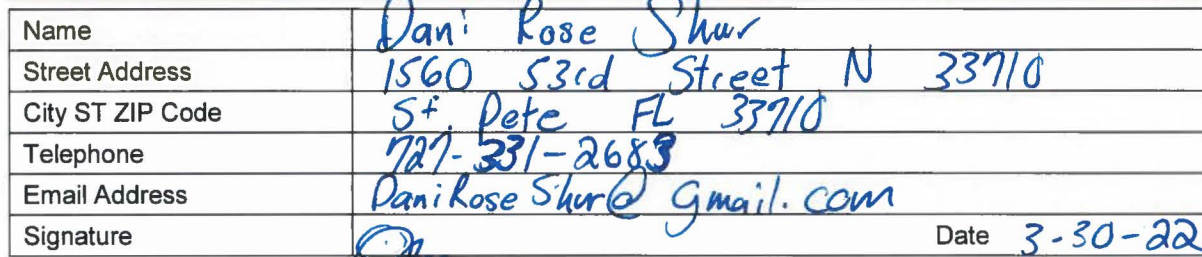 Name Dani Rose Shur
Street Address 1560 53rd Street N 33710
City ST ZIP Code St. Pete FL 33710
Telephone 727-331-2683
Email Address DaniRoseShur@gmail.com
Signature Date 3-30-22